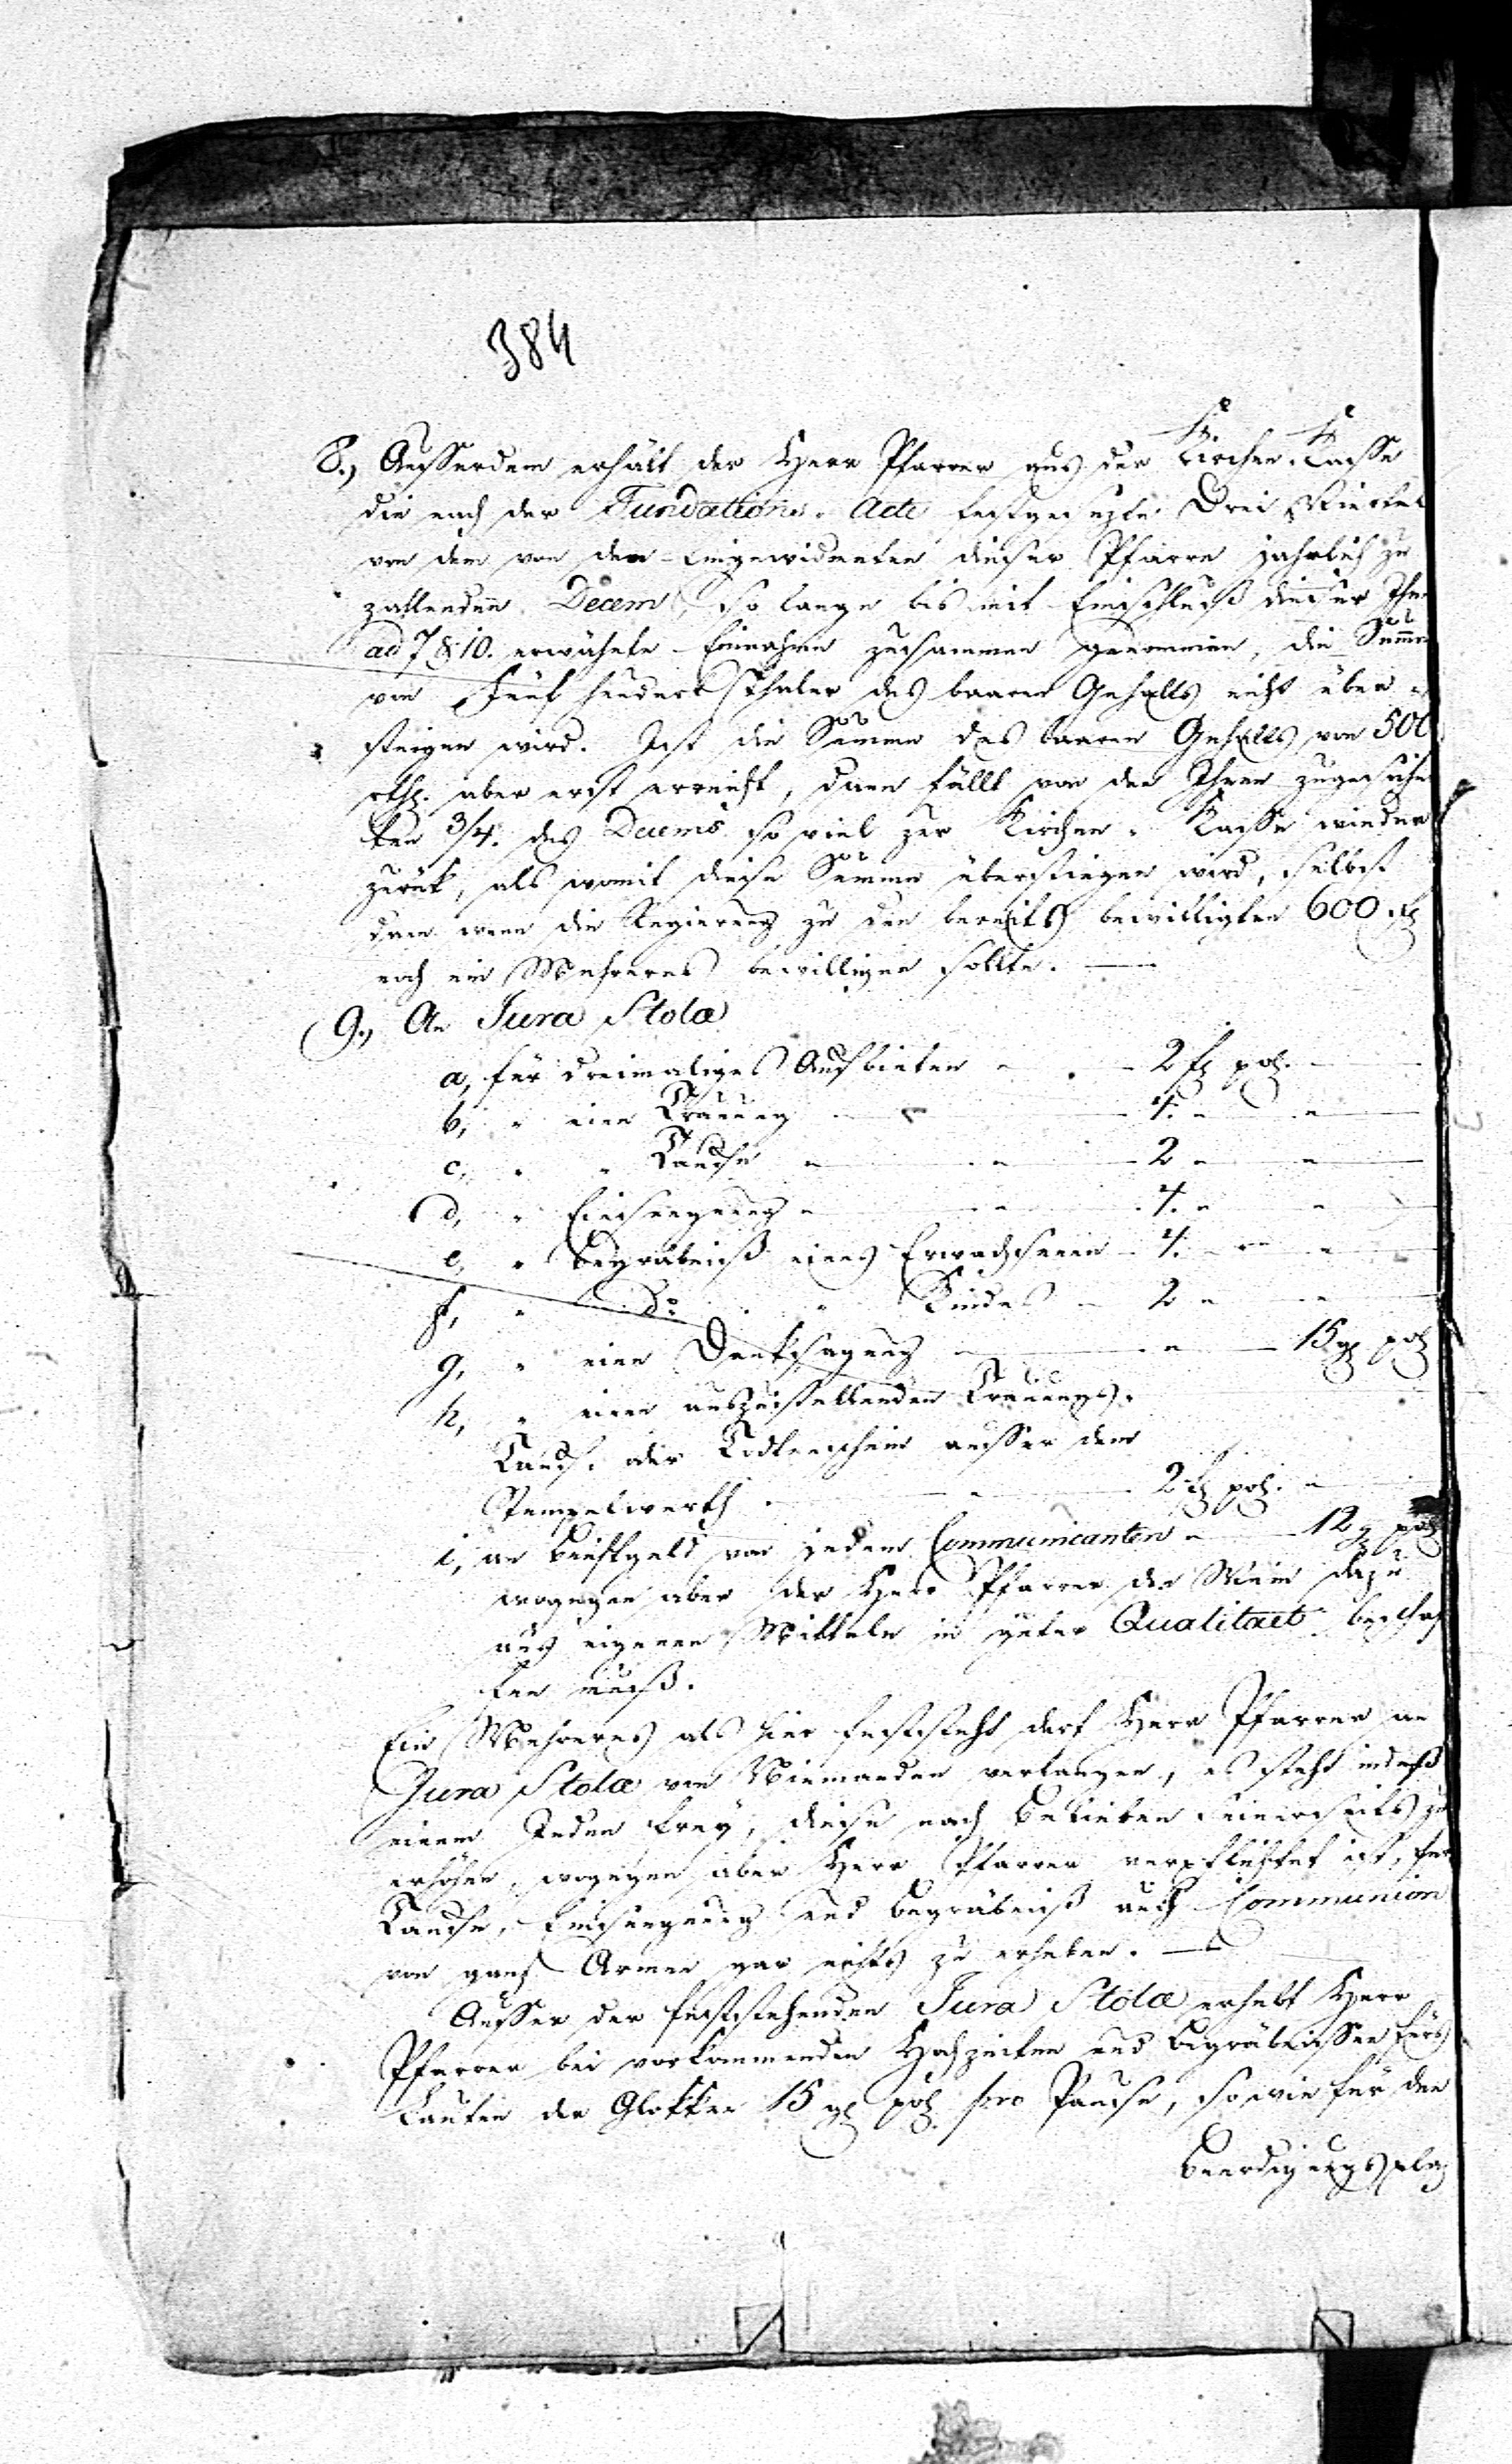 384
8., Ausserdem erhält der Herr Pfarrer aus der Kirchen-Kasse
die nach der Fundations-Acte festgesezte Drei Viertel
von dem von den Eingewidmeten dieser Pfarre jahrlich zu
zallenden Decem, so lange bis mit Einschluß dieser Ihm
ad 7 & 10. erwähnte Einnahme zusammen genommen, die Summe
von Fünf hundert Thaler des baaren Gehalts nicht über-
steigen wird. Ist die Summe des baaren Gehalts von 500
rth. aber erst erreicht, dann fällt von den Ihm zugesicher
ten 3/4. des Decems so viel zur Kirchen-Kasse wieder
zurük, als womit diese Summe überstiegen wird, selbst
dann wenn die Regierung zu den bereits bewilligten 600 f
noch ein Mehreres bewilligen sollte. —
9., An Jura Stolæ
a, für dreimaliges Aufbieten - - 2 fl pol.
b, " eine Trauung - - 4. " "
c, " " Taufe " " 2 " "
d, " Einsegnung " " 4. " "
e, " Begräbniß eines Erwachsenen - 4. " "
f, " do " Kindes - 2 " "
g, " eine Danksagung - " - 15 gl pol
h, " einen auszustellenden Trauungs-
Tauf- oder Todtenschein ausser dem
Stempelwerth - " - 2 fl pol. "
i, an Beichtgeld von jedem Communicanten - 12 g pol
wogegen aber der Herr Pfarrer den Wein dazu
aus eigenen Mitteln in guter Qualitaet beschaf
fen muß.
Ein Mehreres als hier feststeht darf Herr Pfarrer an
Jura Stolæ von Niemanden verlangen, es steht indeß
einem Jeden frey, diese nach Belieben seinerseits zu
erhöhen, wogegen aber Herr Pfarrer verpflichtet ist, für
Taufe, Einsegnung und Begräbniß auch Communion
von ganz Armen gar nichts zu erheben. —
Ausser der feststehenden Jura Stolæ erhebt Herr
Pfarrer bei vorkommenden Hochzeiten und Begräbnissen fürs
Lauten der Glokken 15 gl pol. pro Pause, so wie für den
Beerdigungsplaz